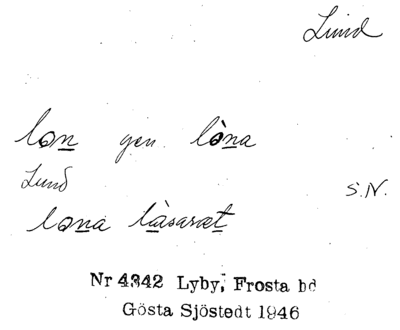 Lund
lon gen. lòna
Lund
S.N.
lona làsaraet
Nr 4342 Lyby, Frosta hd
Gösta Sjöstedt 1946